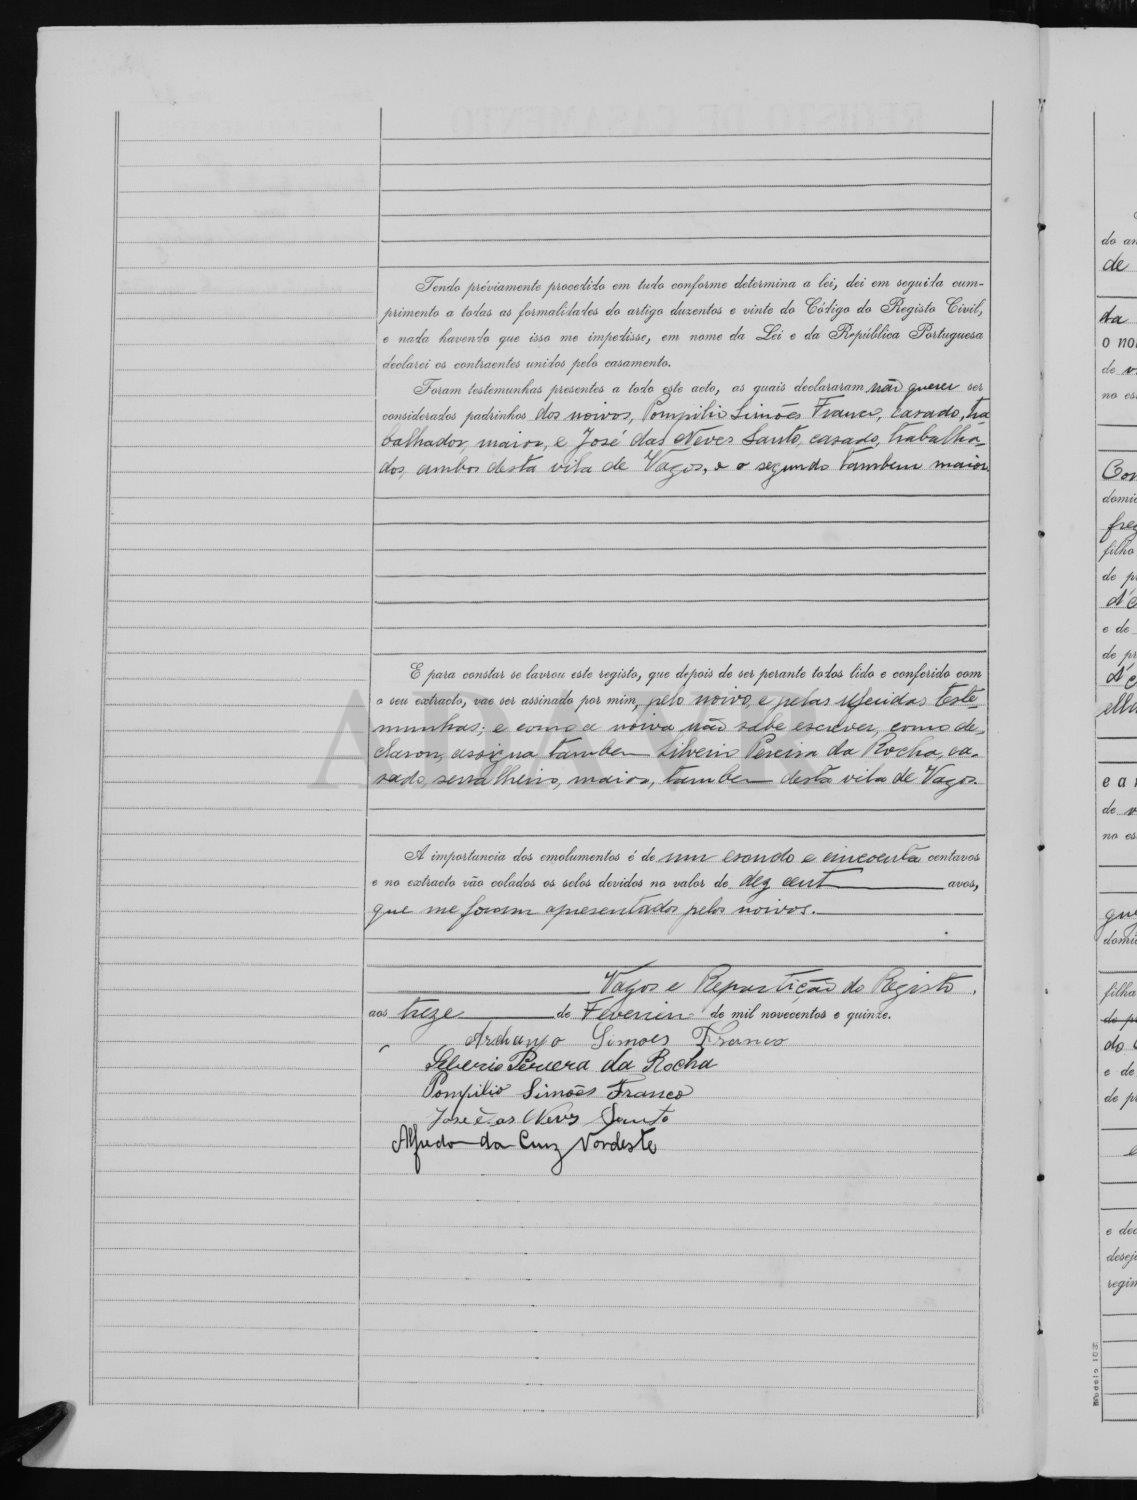 Tendo préviamente procedido em tudo conforme determina a lei, dei em seguida cum-
primento a todas as formalidades do artigo duzentos e vinte do Código do Registo Civil,
e nada havendo que isso me impedisse, em nome da Lei e da República Portuguesa
declarei os contraentes unidos pelo casamento.
Foram testemunhas presentes a todo este acto, as quais declararam não querer ser
considerados padrinhos dos noivos, Pompilio Simões Franco, casado, tra
balhador, maior, e José das Neves Santo, casado, trabalha-
dor, ambos desta vila de Vagos, e o segundo tambem maior.
E para constar se lavrou este registo, que depois de ser perante todos lido e conferido com
o seu extracto, vae ser assinado por mim, pelo noivo, e pelas referidas teste-
munhas; e como a noiva não sabe escrever, como de-
clarou, assigna tambem Silverio Pereira da Rocha, ca-
sado, serralheiro, maior, tambem desta vila de Vagos.
A importancia dos emolumentos é de um escudo e cincoenta centavos
e no extracto vão colados os selos devidos no valor de dez cent avos,
que me foram apresentados pelos noivos.
Vagos e Repartição do Registo,
aos treze de Fevereiro de mil novecentos e quinze.
Archanjo Simões Franco
Silverio Pereira da Rocha
Pompilio Simões Franco
José das Neves Santo
Alfredo da Cruz Nordeste
REGISTO DE CASAMENTO
do an
de
da
o no
de v
no es
Con
domic
freg
filho
de p
e de
de pr
e a
de v
no es
que
domi
filha
de p
do
e de
de p
e dec
desej
regim
Modelo